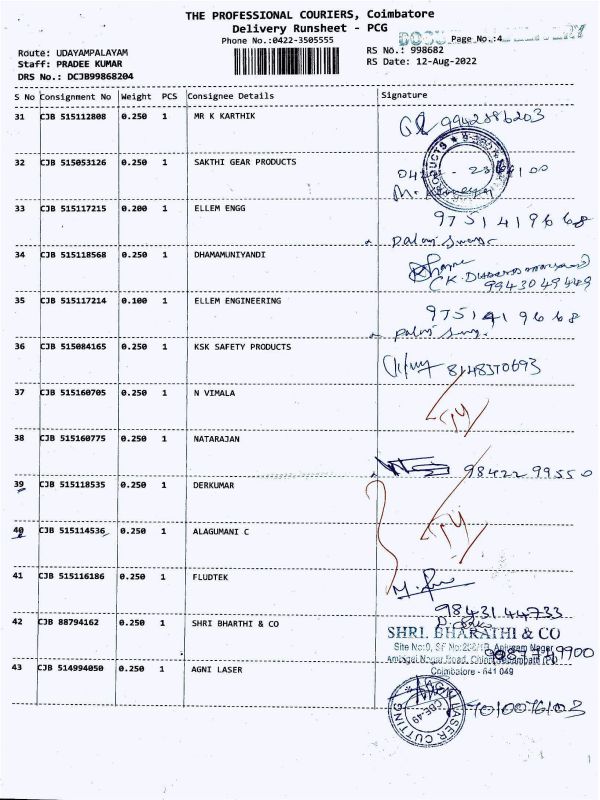 THE PROFESSIONAL COURIERS, Coimbatore
Delivery Runsheet - PCG
Phone No.:0422-3505555
Page No.:4
Route: UDAYAMPALAYAM
RS No.: 998682
Staff: PRADEE KUMAR
RS Date: 12-Aug-2022
DRS No.: DCJB99868204
S No Consignment No Weight PCS Consignee Details Signature
31 CJB 515112808 0.250 1 MR K KARTHIK
32 CJB 515053126 0.250 1 SAKTHI GEAR PRODUCTS
33 CJB 515117215 0.200 1 ELLEM ENGG 9751419668
34 CJB 515118568 0.250 1 DHAMAMUNIYANDI
9943049449
35 CJB 515117214 0.100 1 ELLEM ENGINEERING 9751419668
36 CJB 515084165 0.250 1 KSK SAFETY PRODUCTS 8148370693
37 CJB 515160705 0.250 1 N VIMALA
38 CJB 515160775 0.250 1 NATARAJAN
98422 99550
39 CJB 515118535 0.250 1 DERKUMAR
40 CJB 515114536 0.250 1 ALAGUMANI C
41 CJB 515116186 0.250 1 FLUDTEK
98431 44733
42 CJB 88794162 0.250 1 SHRI BHARTHI & CO
SHRI. BHARATHI & CO
Coimbatore - 641 049
43 CJB 514994050 0.250 1 AGNI LASER